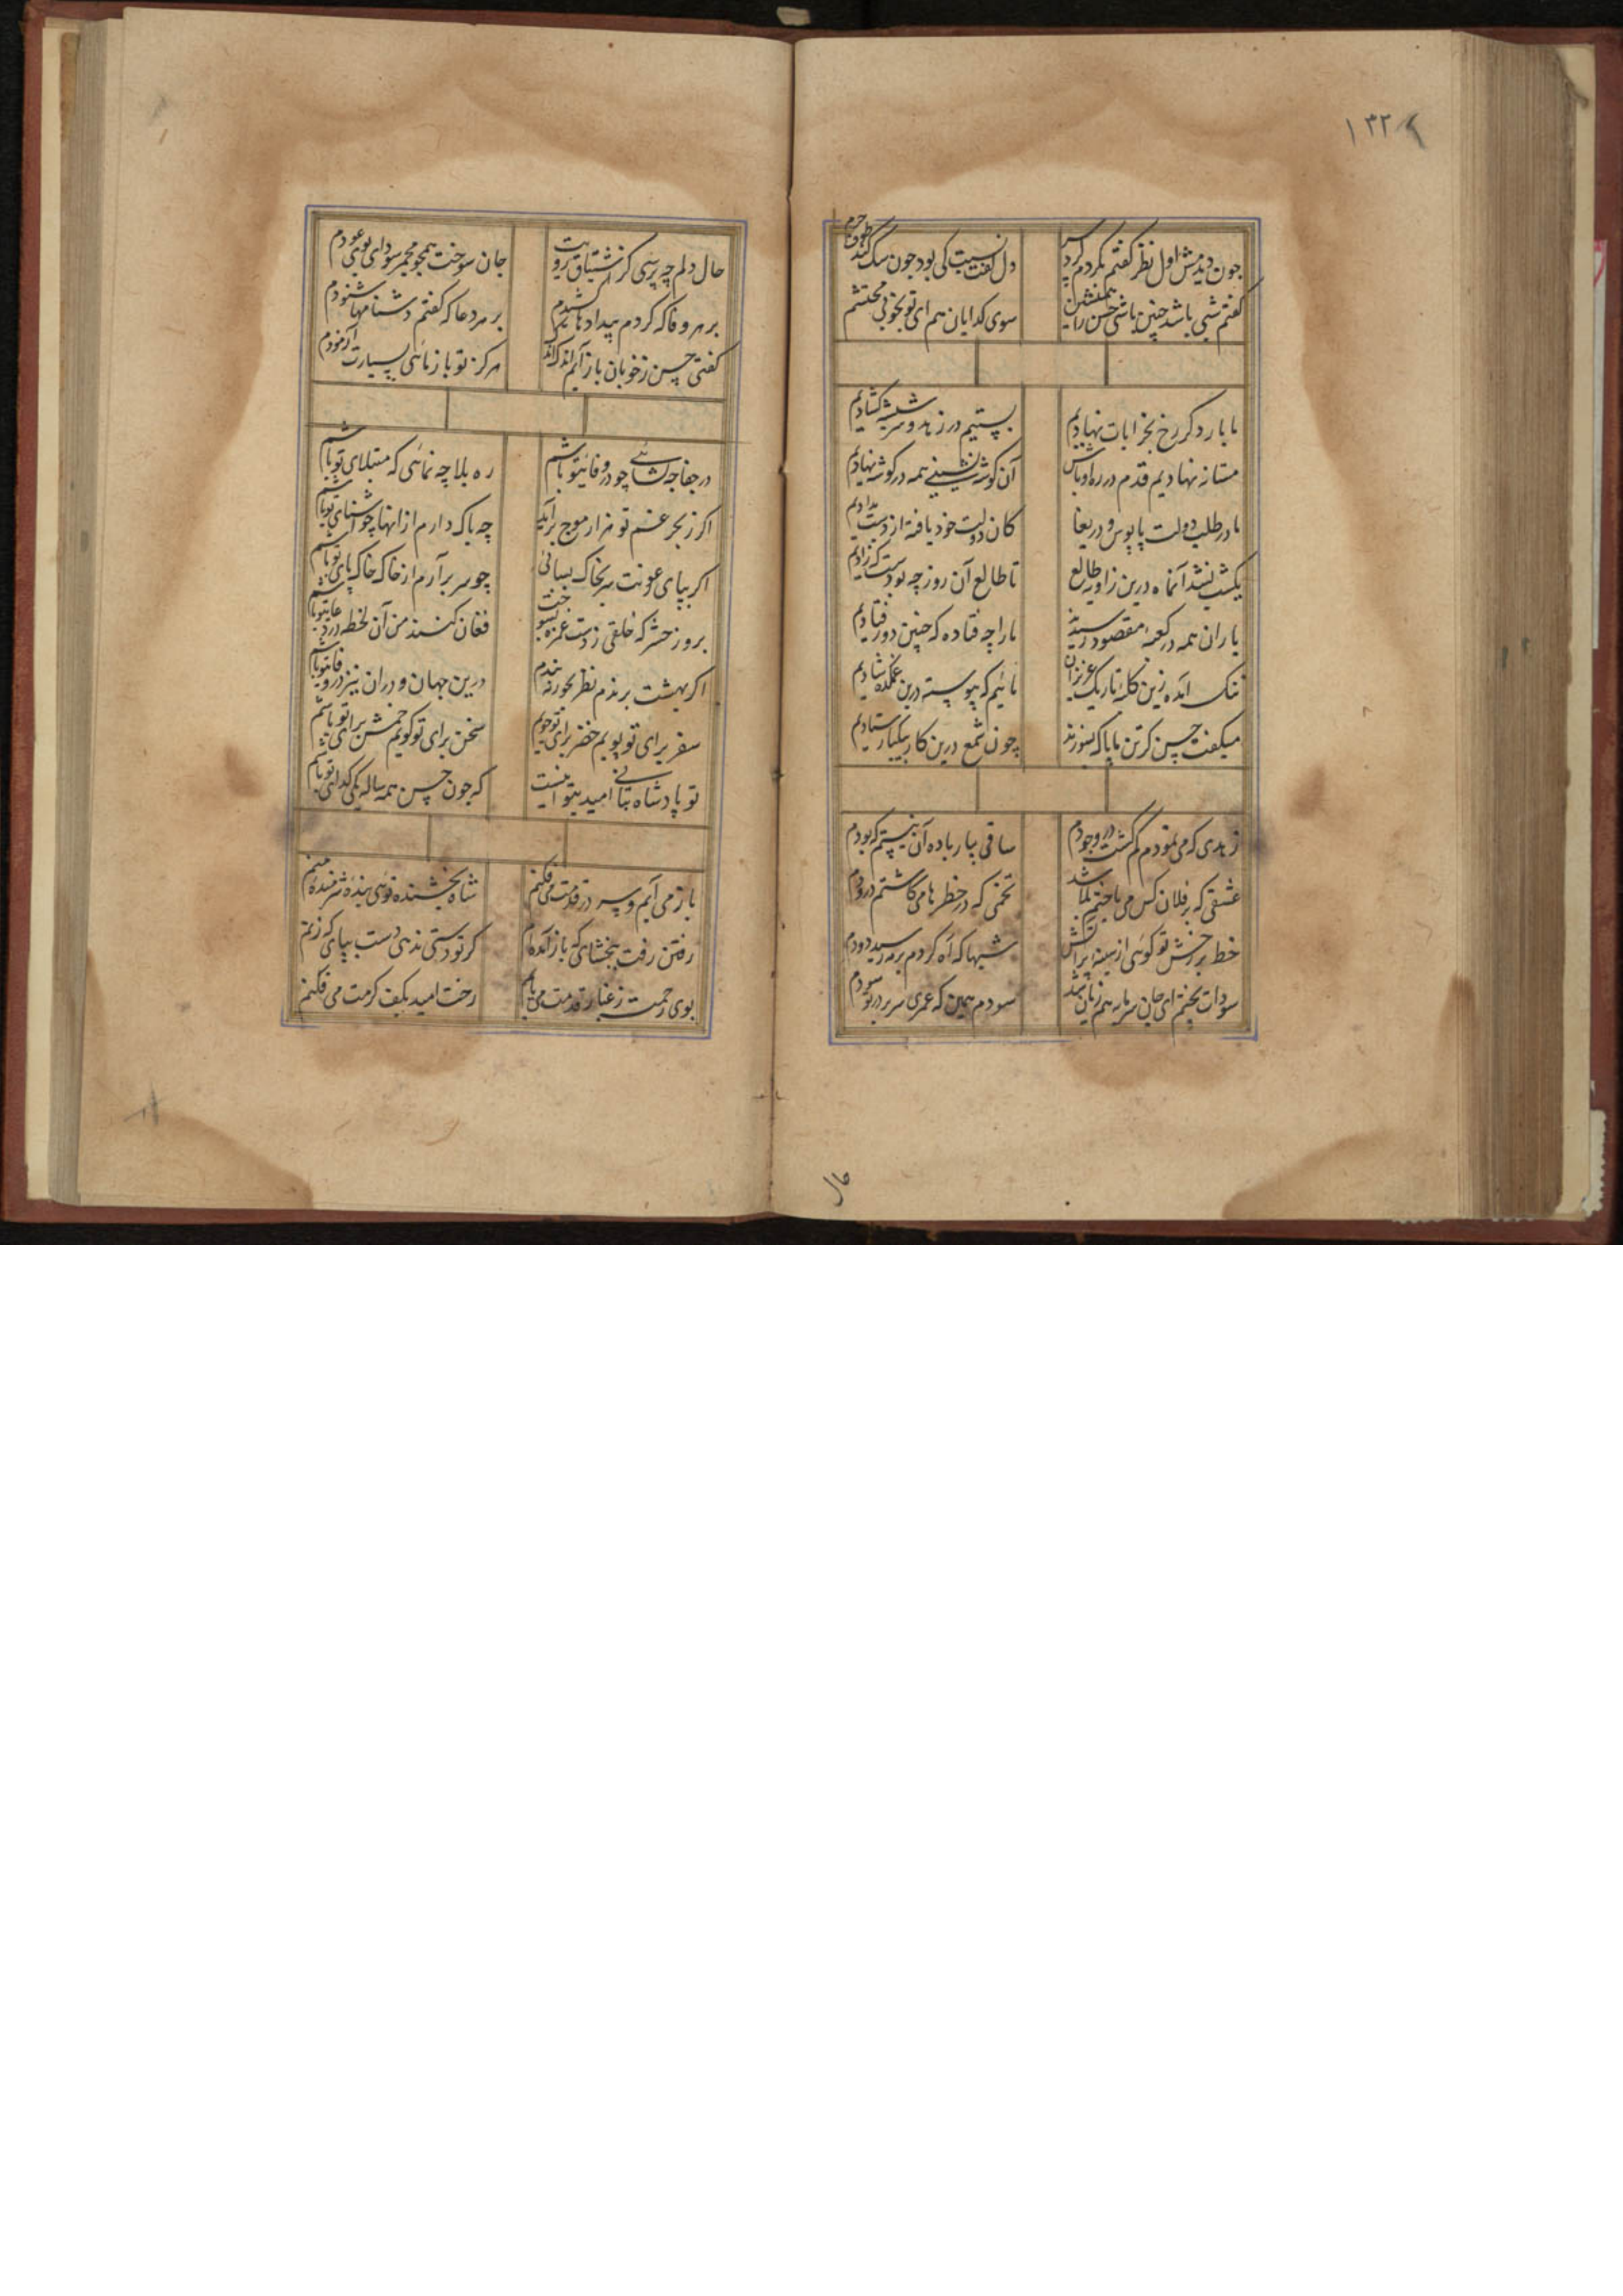 ۱۳۲
جون دیدمش اول نظر گفتم نکردم کرد بس دل گفت نسبت کی بود جون سک کند طوف حرم
گفتم شبی باشد چنین باشی حسن را همنشین سوی کدایان هم ای تو بخوبی محتشم
ما بار دکر رخ بخرابات نهادیم بستیم در زهد و سر شیشه کشادیم
مستانه نهادیم قدم در ره اوباش آن کوشه نشینی همه در کوشه نهادیم
ما در طلب دولت پابوس و دریغا کان دولت خود یافته از دست بدادیم
یکشب نشد آنماه درین زاویه طالع تا طالع آن روز چه بودست که زادیم
یاران همه در کعبهٔ مقصود رسیدند ما را چه فتاده که چنین دور فتادیم
تنک آمده زین کلبهٔ تاریک عزیزان مائیم که پیوسته درین غمکده شادیم
میکفت حسن کر تن ما پاک بسوزند چون شمع درین کار بیکبار ستادیم
زهدی که می نمودم کم کشت در وجودم ساقی بیار باده آن نیستم که بودم
عشقی که بر فلان کس می باختم بلا شد تخمی که در خطرها می کاشتم درودم
خط بر رخش تو کوئی از سینه پر آتش شبها که آه کردم بر مه رسید دودم
سودات پختم ای جان سرمایه هم زیان شد سودم همین که عمری سر بر در تو سودم
حال
حال دلم چه پرسی کز اشتیاق رویت جان سوخت همجو مجمر سودای بوی عودم
بر هر وفا که کردم بیدادها شدم بر هر دعا که گفتم دشنامها شنودم
کفتی حسن ز خوبان باز آیم اندک اندک هرکز تو باز نائی بسیارت آزمودم
در جفا چه کشائی چو در وفای تو باشم ره بلا چه نمائی که مبتلای تو باشم
اکر ز بحر غم تو هزار موج برآید چه باک دارم از انها چو آشنای تو باشم
اکر بپای عونت سر بخاک بسائی چو سر برآرم از خاک خاک پای تو باشم
بروز حشر که خلقی ز دست غمزه فغان کنند من آن لحظه در دعای تو باشم
اکر بهشت برندم نظر بحور نبندم درین جهان و دران نیز در وفای تو باشم
سفر برای تو پویم حضر برای تو جویم سخن برای تو کویم خمش برای تو باشم
تو پادشاه بتانی امید بتو اینست که جون حسن همه ساله یکی کدای تو باشم
باز می آیم و سر در قدمت می فکنم شاه بخشنده توئی بندهٔ شرمنده منم
رفتن رفت ببخشای که باز آمده ام کر تو دستی ندهی دست بپای که زنم
بوی رحمت ز غبار قدمت می یابم رخت امید بکف کرمت می فکنم